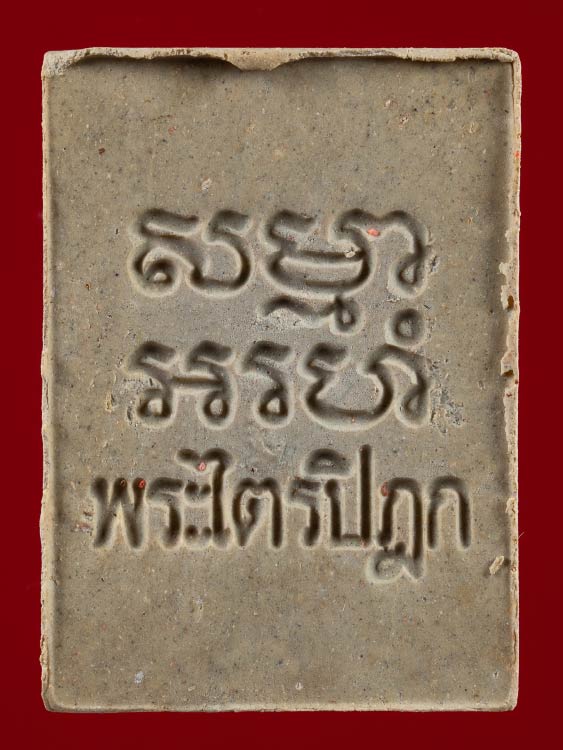 សម្មា
អរហំ
พระไตรปิฎก